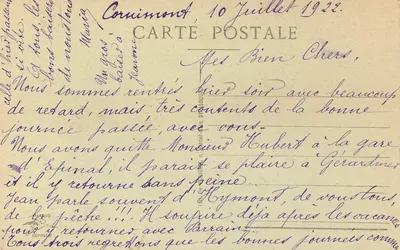 Cornimont, 10 Juillet 1922.
CARTE POSTALE
Mes Bien Chers,
Nous sommes rentrés hier soir avec beaucoup
de retard, mais très contents de la bonne
journée passée, avec vous.
Nous avons quitté Monsieur Hubert à la gare
d'Epinal, il parait se plaire à Gérardmer
et il y retourne sans peine
Jean parle souvent d'Hymont, de vous tous,
de pêche !!! Il soupire déjà après les vacances
pour y retourner, avec Parrain.
Tous trois regrettons que les bonnes journées comme
celle d'hier passent
si vite.
A tous, les
bons baisers
de nous tous
Maria
Un gros
baiser à